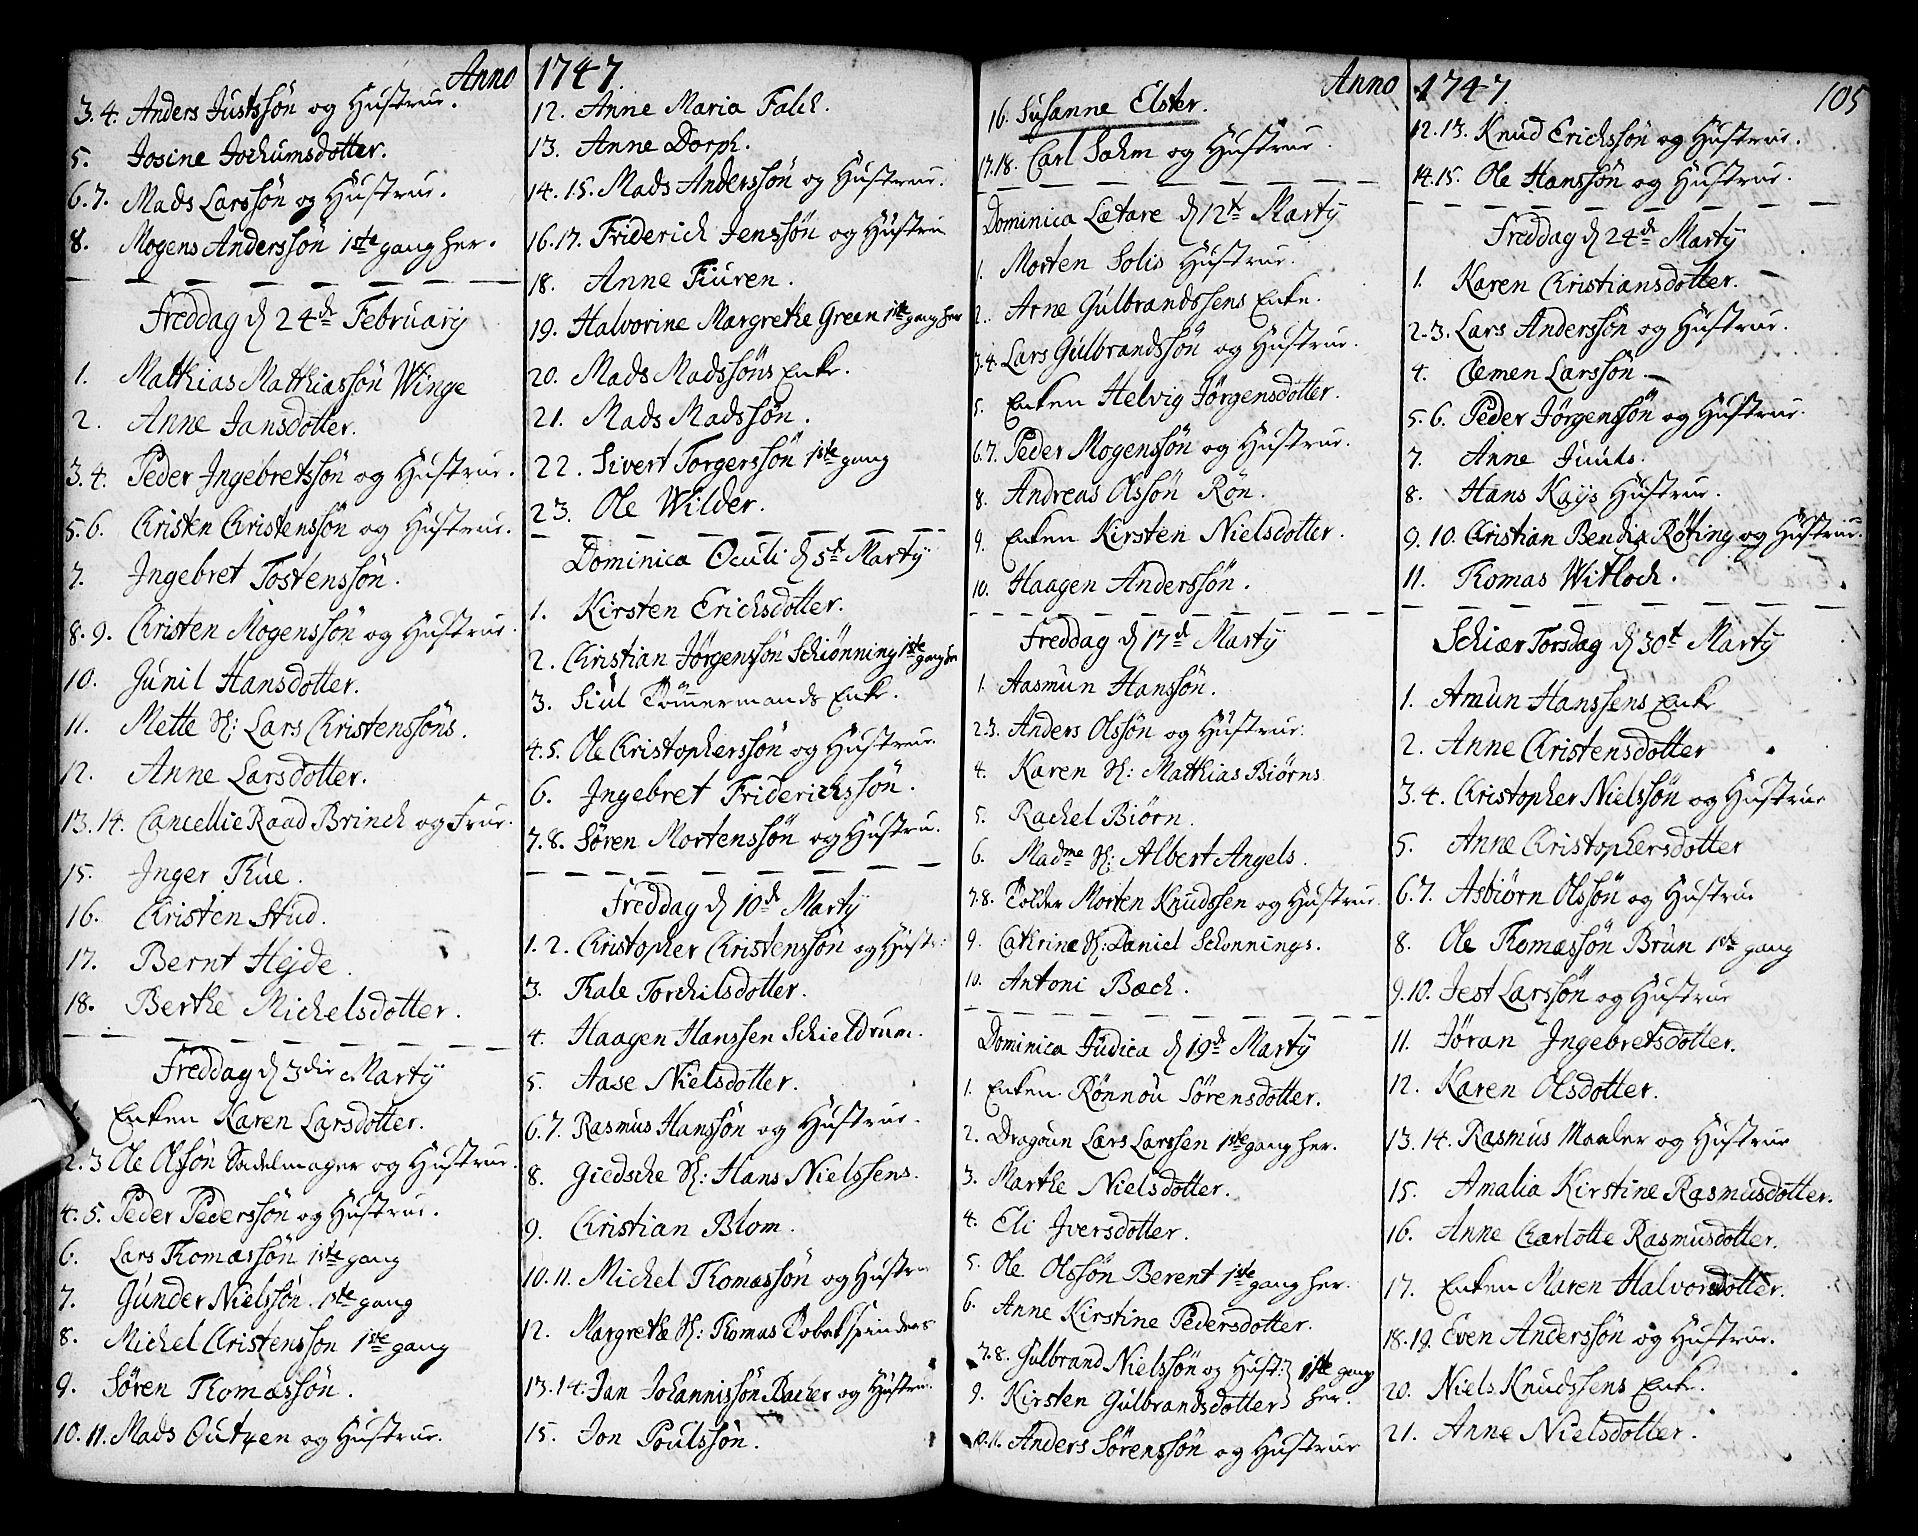 Anno
3.4. Anders Justssøn og Hustrue.
5. Josine Jochumsdotter.
6.7. Mads Larssøn og Hustrue.
8. Mogens Anderssøn 1ste gang her.
Freddag d 24de February
1. Mathias Mathiassøn Winge
2. Anne Jansdotter.
3.4. Peder Ingebretssøn og Hustrue.
5.6. Christen Christenssøn og Hustrue.
7. Ingebret Tostenssøn.
8.9. Christen Mogenssøn og Hustrue.
10. Gunil Hansdotter.
11. Mette Sl: Lars Christenssøns.
12. Anne Larsdotter.
13.14. Cancellie Raad Brinch og Frue.
15. Inger Thue.
16. Christen Stud.
17. Bernt Hejde.
18. Berthe Michelsdotter.
Freddag d 3die Marty
1. Enken Karen Larsdotter.
2.3 Ole Olssøn Sadelmager og Hustrue.
4.5. Peder Pederssøn og Hustrue.
6. Lars Thomassøn 1ste gang
7. Gunder Nielssøn. 1ste gang
8. Michel Christenssøn 1ste gang
9. Søren Thomassøn.
10.11. Mads Outzen og Hustrue.
1747.
12. Anne Maria Falch.
13. Anne Dorph.
14.15. Mads Anderssøn og Hustrue.
16.17. Friderich Jenssøn og Hustru
18. Anne Fiuren.
19. Halvorine Margrethe Green 1ste gang her
20. Mads Madssøns Enke.
21. Mads Madssøn.
22. Sivert Torgerssøn 1ste gang
23. Ole Wilder.
Dominica Oculi d 5te Marty
1. Kirsten Erichsdotter.
2. Christian Jørgenssøn Schiønning 1ste gang her
3. Siul Tømmermands Enke.
4.5. Ole Christopherssøn og Hustrue.
6. Ingebret Friderichssøn.
7.8. Søren Mortenssøn og Hustru.
Freddag d 10de Marty
1.2. Christopher Christenssøn og Hust:
3. Thale Torchilsdotter.
4. Haagen Hanssen Schieldrum.
5. Aase Nielsdotter.
6.7. Rasmus Hanssøn og Hustrue.
8. Giedsche Sl: Hans Nielssens.
9. Christian Blom.
10.11. Michel Thomassøn og Hustru
12. Margrethe Sl: Thomas Tobakspinders
13.14. Jan Johannissøn Backer og Hustru.
15. Jon Poulssøn.
Anno
16. Susanne Elster.
17.18. Carl Sahm og Hustrue.
Dominica Lætare d 12te Marty
1. Morten Solis Hustrue.
2. Arne Gulbrandssens Enke.
3.4. Lars Gulbrandssøn og Hustrue.
5. Enken Helvig Jørgensdotter.
6.7. Peder Mogenssøn og Hustrue.
8. Andreas Olssøn Røn.
9. Enken Kirsten Nielsdotter.
10. Haagen Anderssøn.
Freddag d 17de Marty
1. Aasmun Hanssøn.
2.3. Anders Olssøn og Hustrue.
4. Karen Sl: Mathias Biørns
5. Rachel Biørn.
6. Madme Sl: Albert Angels.
7.8. Tolder Morten Knudssen og Hustrue.
9. Cathrine Sl: Daniel Schonnings.
10. Antoni Bæch.
Dominica Judica d 19de Marty
1. Enken Rønnou Sørensdotter.
2. Dragoun Lars Larssen 1ste gang her.
3. Marthe Nielsdotter.
4. Eli Iversdotter.
5. Ole Olssøn Berent 1ste gang her.
6. Anne Kirstine Pedersdotter.
7.8. Gulbrand Nielssøn og Hust: } 1ste gang
9. Kirsten Gulbrandsdotter } her.
10.11. Anders Sørenssøn og Hustrue
1747. 105
12.13. Knud Erichssøn og Hustrue.
14.15. Ole Hanssøn og Hustrue.
Freddag d 24de Marty
1. Karen Christiansdotter.
2.3. Lars Anderssøn og Hustrue.
4. Clemen Larssøn.
5.6. Peder Jørgenssøn og Hustrue.
7. Anne Juuls.
8. Hans Kays Hustrue.
9.10. Christian Bendix Røting og Hustrue.
11. Thomas Witloch.
Schiær Torsdag d 30te Marty
1. Amun Hanssens Enke
2. Anne Christensdotter
3.4. Christopher Nielssøn og Hustrue
5. Anne Christophersdotter
6.7. Asbiørn Olssøn og Hustrue
8. Ole Thomassøn Brun 1ste gang
9.10. Jest Larssøn og Hustrue
11. Jøran Ingebretsdotter.
12. Karen Olsdotter.
13.14. Rasmus Maaler og Hustrue
15. Amalia Kirstine Rasmusdotter.
16. Anne Charlotte Rasmusdotter.
17. Enken Maren Halvorsdotter.
18.19. Even Anderssøn og Hustrue.
20. Niels Knudssens Enke.
21. Anne Nielsdotter.